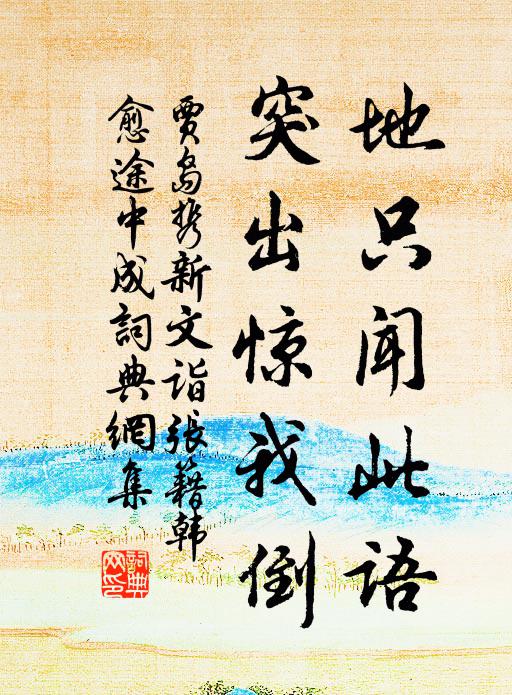 地只闻此语
突出惊我倒
贾岛携新文诣張籍韩
愈途中成詞典網集
詞典
网印